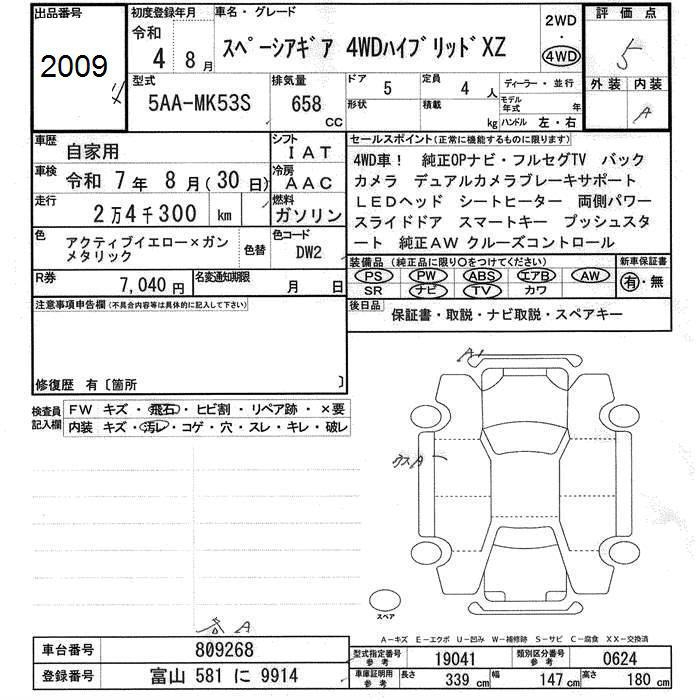 出品番号 初度登録年月 車名・グレード 2WD 評価点
2009 令和 4 8月 スペーシアギア 4WDハイブリッドXZ ・ 4WD 5
型式 排気量 ドア 5 定員 4人 ディーラー・並行 外装 内装
5AA-MK53S 658 CC 形状 積載 kg モデル年式 年 A
ハンドル 左・右
車歴 自家用 シフト IAT セールスポイント(正常に機能するものに限ります)
車検 令和 7年 8月(30日) 冷房 AAC 4WD車! 純正OPナビ・フルセグTV バック
カメラ デュアルカメラブレーキサポート
走行 2万4千300 km 燃料 ガソリン LEDヘッド シートヒーター 両側パワー
スライドドア スマートキー プッシュスタ
色 アクティブイエロー×ガンメタリック 色替 色コード DW2 ート 純正AW クルーズコントロール
装備品(純正品に限り○をつけてください) 新車保証書
R券 7,040円 名変通知期限 月 日 PS PW ABS エアB AW 有・無
SR ナビ TV カワ
注意事項申告欄(不具合内容等は具体的に記入して下さい) 後日品 保証書・取説・ナビ取説・スペアキー
修復歴 有〔箇所 〕
A1
検査員記入欄 FW キズ・飛石・ヒビ割・リペア跡・×要
内装 キズ・汚レ・コゲ・穴・スレ・キレ・破レ
ウスA
スペア
A
A-キズ E-エクボ U-凹み W-補修跡 S-サビ C-腐食 XX-交換済
車台番号 809268 型式指定番号 参考 19041 類別区分番号 参考 0624
登録番号 富山 581 に 9914 車庫証明用 参考 長さ 339cm 幅 147cm 高さ 180cm